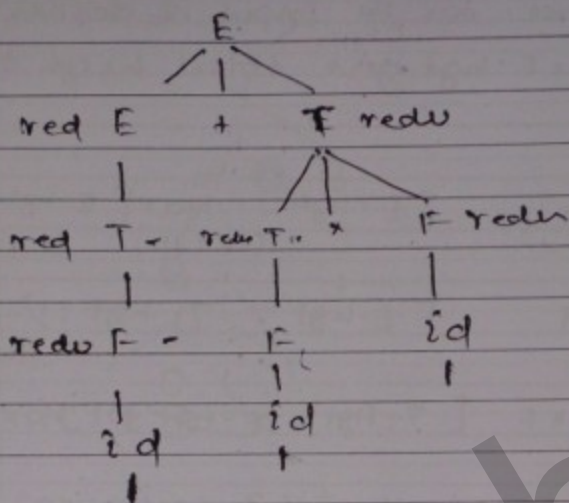 E
red E + T redu
red T - redu T * F redu
redu F - F id
id id